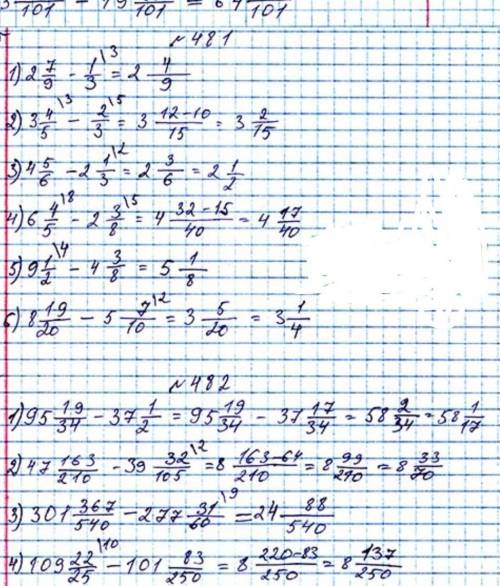 101 - 19 101 = 64 101
№ 481
1) 2 7/9 - 1/3 \3 = 2 4/9
2) 3 4/5 \3 - 2/3 \5 = 3 12-10/15 = 3 2/15
3) 4 5/6 - 2 1/3 \2 = 2 3/6 = 2 1/2
4) 6 4/5 \8 - 2 3/8 \5 = 4 32-15/40 = 4 17/40
5) 9 1/2 \4 - 4 3/8 = 5 1/8
6) 8 19/20 - 5 7/10 \2 = 3 5/20 = 3 1/4
№ 482
1) 95 19/34 - 37 1/2 = 95 19/34 - 37 17/34 = 58 2/34 = 58 1/17
2) 47 163/210 - 39 32/105 \2 = 8 163-64/210 = 8 99/210 = 8 33/70
3) 301 367/540 - 277 31/60 \9 = 24 88/540
4) 109 22/25 \10 - 101 83/250 = 8 220-83/250 = 8 137/250